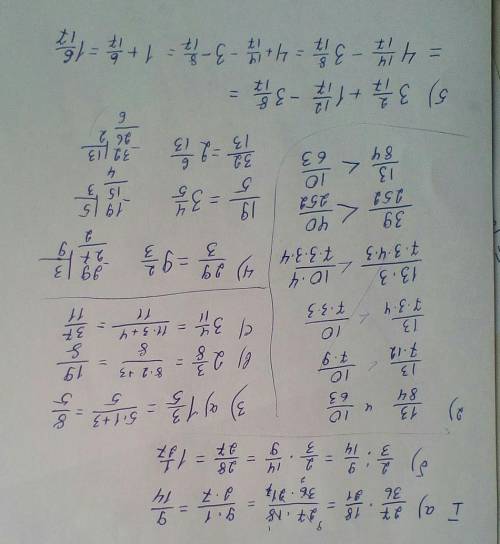 I а) 27/36 · 18/21 = 27·18/36·21 = 9·1/2·7 = 9/14
б) 2/3 : 9/14 = 2/3 · 14/9 = 28/27 = 1 1/27
2) 13/84 и 10/63
13/7·12 < 10/7·9
13/7·3·4 < 10/7·3·3
13·3/7·3·4·3 < 10·4/7·3·3·4
39/252 < 40/252
13/84 < 10/63
3) а) 1 3/5 = 5·1+3/5 = 8/5
в) 2 3/8 = 8·2+3/8 = 19/8
с) 3 4/11 = 11·3+4/11 = 37/11
4) 29/3 = 9 2/3
29 | 3
27 9
2
19/5 = 3 4/5
19 | 5
15 3
4
32/13 = 2 6/13
32 | 13
26 2
6
5) 3 2/17 + 1 12/17 - 3 8/17 =
= 4 14/17 - 3 8/17 = 4 + 14/17 - 3 - 8/17 = 1 + 6/17 = 1 6/17